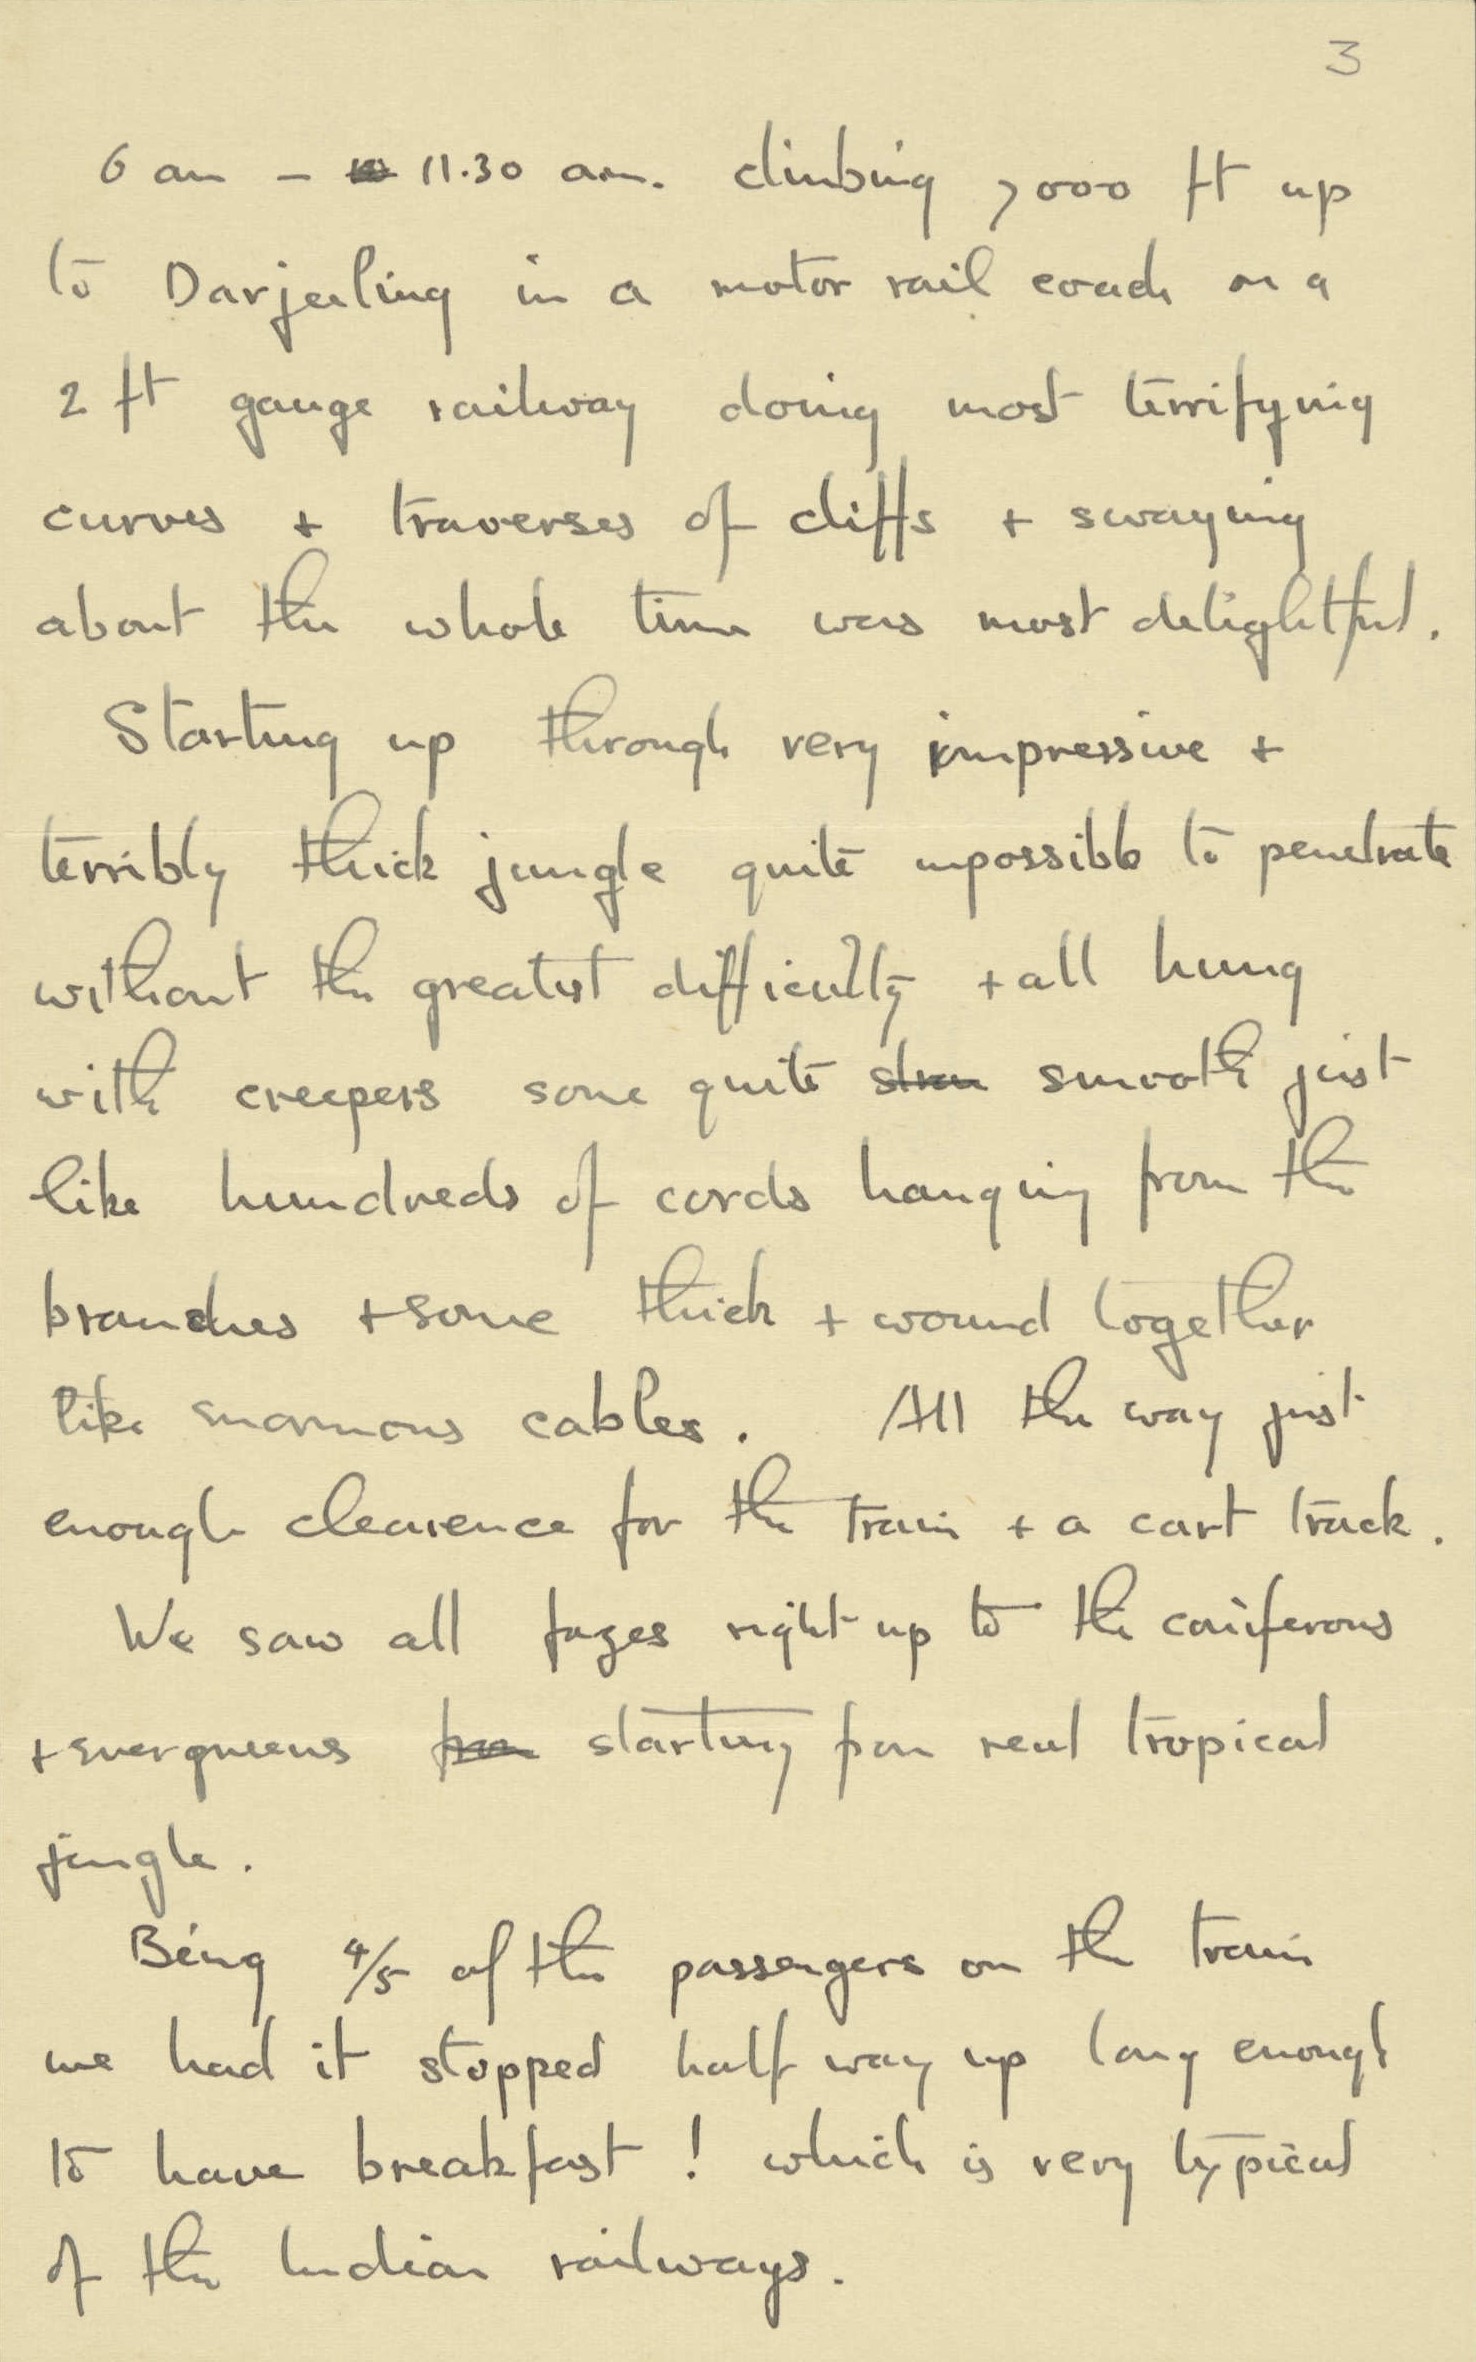 3
6 am – 11.30 am. climbing 7000 ft up
to Darjeeling in a motor rail coach on a
2 ft gauge railway doing most terrifying
curves + traverses of cliffs + swaying
about the whole time was most delightful.
Starting up through very impressive +
terribly thick jungle quite impossible to penetrate
without the greatest difficulty + all hung
with creepers some quite smooth just
like hundreds of cords hanging from the
branches + some thick + wound together
like enormous cables. All the way just
enough clearence for the train + a cart track.
We saw all fazes right up to the coniferous
+ evergreens from starting from real tropical
jungle.
Being 4/5 of the passengers on the train
we had it stopped half way up long enough
to have breakfast! which is very typical
of the Indian railways.